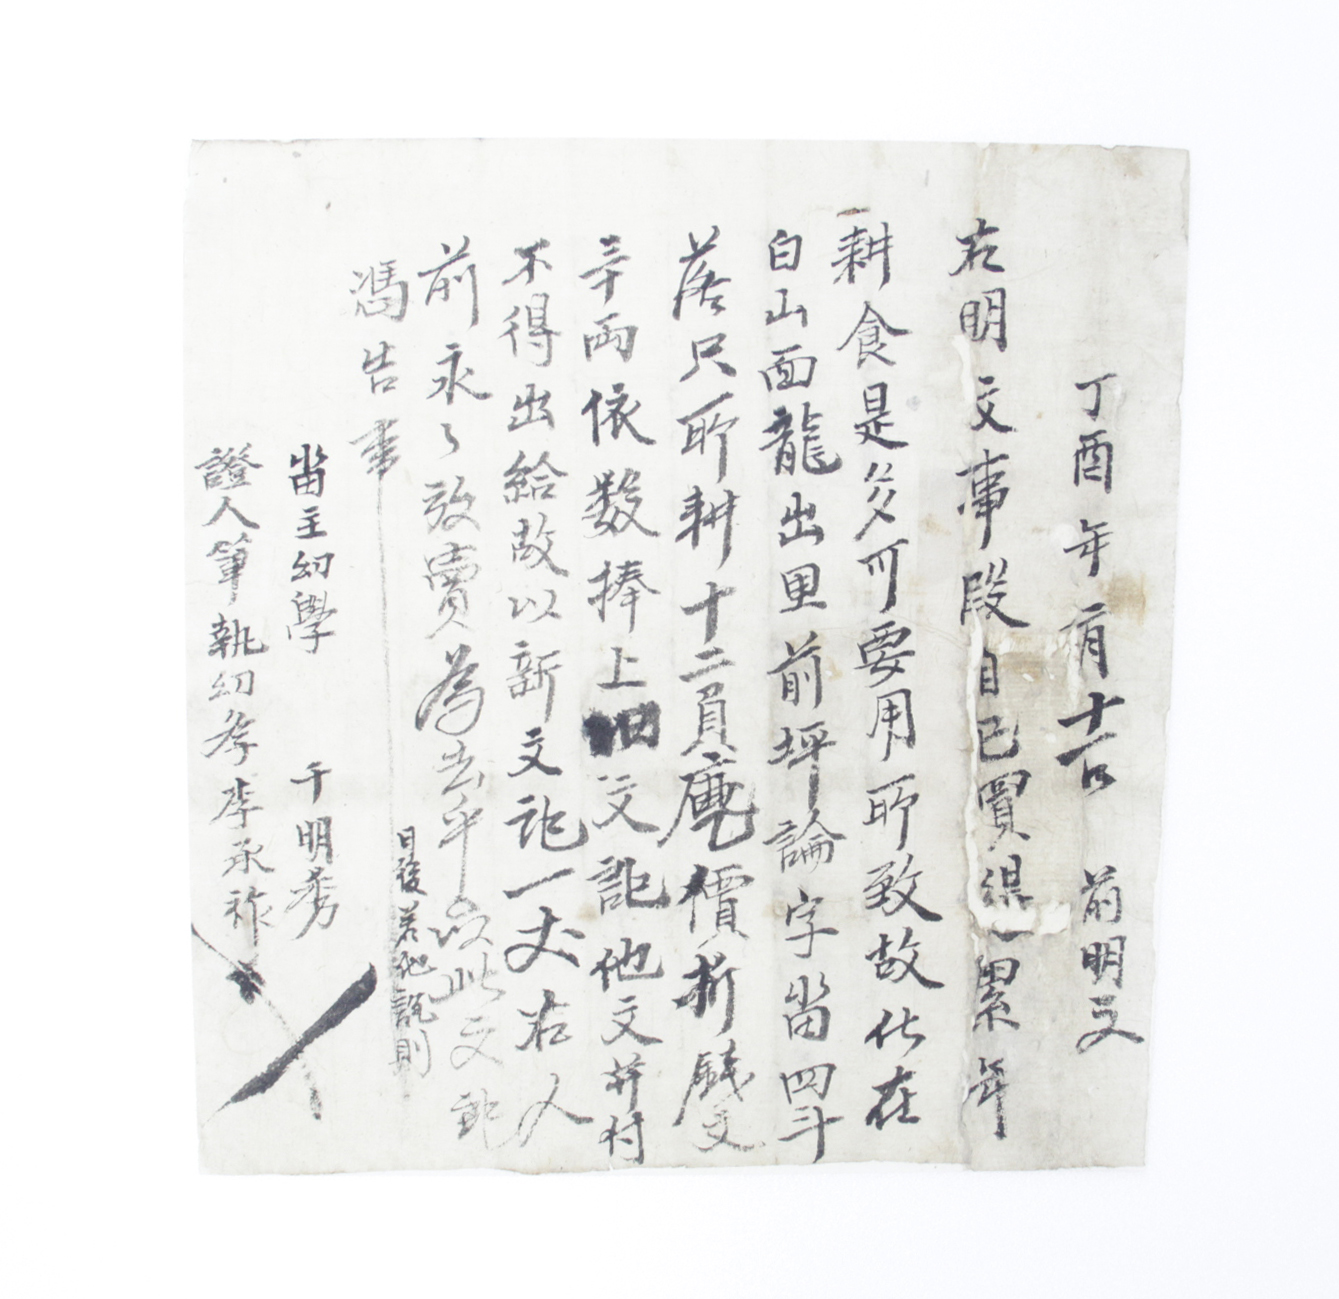 丁酉年 月十一日 前明文
右明文事段自己買得 累年
耕食是多可要用所致故伏在
白山面龍出里前坪論字畓四斗
落只所耕十二負庫價折錢文
三十両依数捧上旧文記他文并付
不得出給故以新文記一丈右人
前永々放賣爲去乎 以此文記
憑告事
日後若他說則
畓主幼學 千明秀
證人筆執幼學李承祚